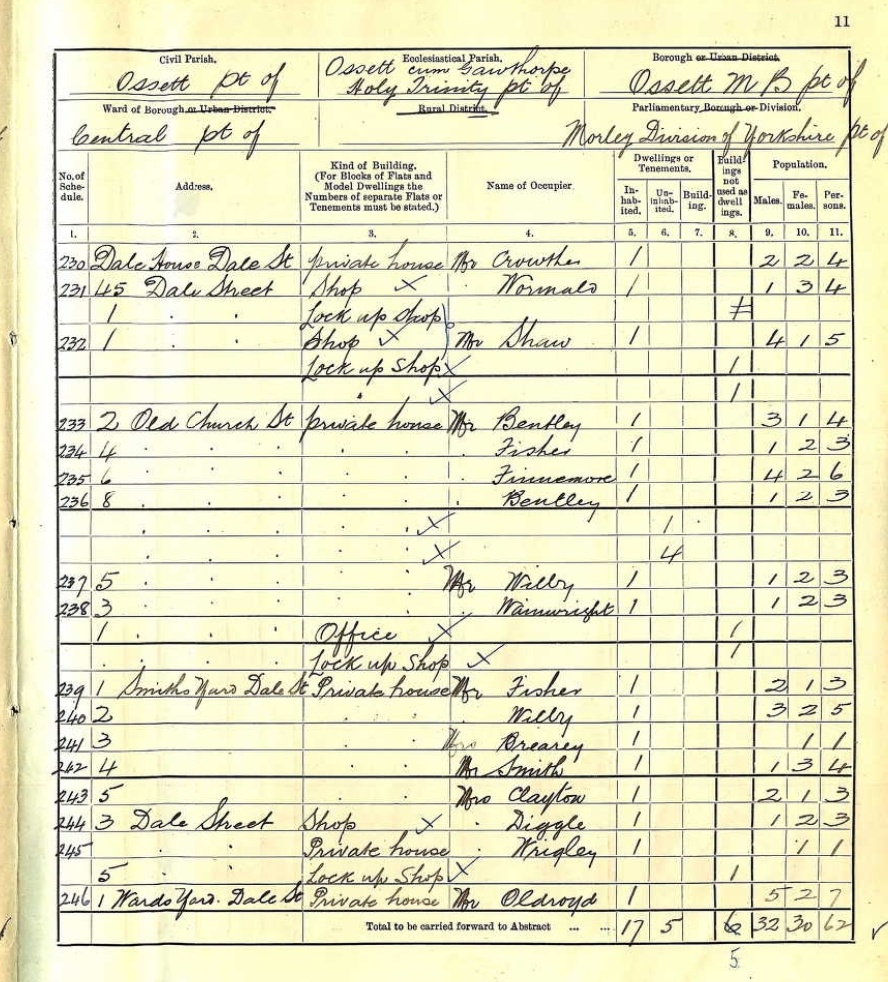 11
Civil Parish. Ecclesiastical Parish. Borough or Urban District.
Ossett pt of Ossett cum Gawthorpe Holy Trinity pt of Ossett M B pt of
Ward of Borough or Urban District. Rural District. Parliamentary Borough or Division.
Central pt of Morley Division of Yorkshire pt of
No. of Schedule. Address. Kind of Building. (For Blocks of Flats and Model Dwellings the Numbers of separate Flats or Tenements must be stated.) Name of Occupier. Dwellings or Tenements. Inhabited. Uninhabited. Building. Buildings not used as dwellings. Population. Males. Females. Persons.
1. 2. 3. 4. 5. 6. 7. 8. 9. 10. 11.
230 Dale House Dale St private house Mr Crowther 1 2 2 4
231 45 Dale Street Shop X " Wormald 1 1 3 4
1 " " Lock up Shop 1
232 1 " " Shop X Mr Shaw 1 4 1 5
Lock up Shop X 1
" X 1
233 2 Old Church St private house Mr Bentley 1 3 1 4
234 4 " " " " " " Fisher 1 1 2 3
235 6 " " " " " " Finnemore 1 4 2 6
236 8 " " " " " " Bentley 1 1 2 3
" " " " " X 1
" " " " " X 4
237 5 " " " " " Mr Wilby 1 1 2 3
238 3 " " " " " " Wainwright 1 1 2 3
1 " " " Office X 1
" " " Lock up Shop X 1
239 1 Smiths Yard Dale St Private house Mr Fisher 1 2 1 3
240 2 " " " Wilby 1 3 2 5
241 3 " " Mrs Brearey 1 1 1
242 4 " " Mr Smith 1 1 3 4
243 5 " " Mrs Clayton 1 2 1 3
244 3 Dale Street Shop X " Diggle 1 1 2 3
245 " " Private house " Wrigley 1 1 1
5 " " Lock up Shop X 1
246 1 Wards Yard. Dale St Private house Mr Oldroyd 1 5 2 7
Total to be carried forward to Abstract ... ... 17 5 6 32 30 62
5